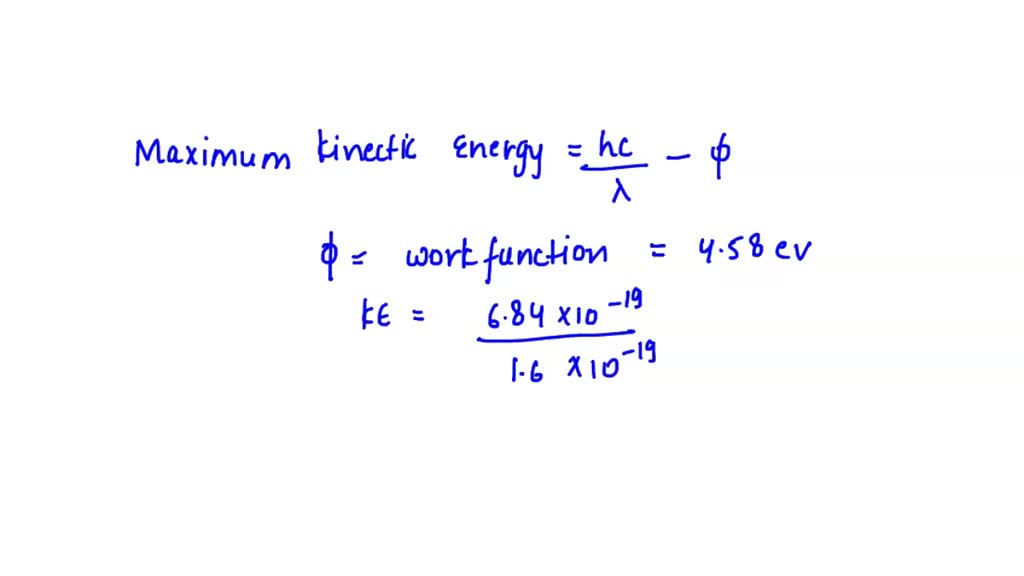 Maximum kinectic Energy = hc/λ − ϕ
ϕ = work function = 4.58 ev
kE = 6.84 × 10⁻¹⁹ / 1.6 × 10⁻¹⁹